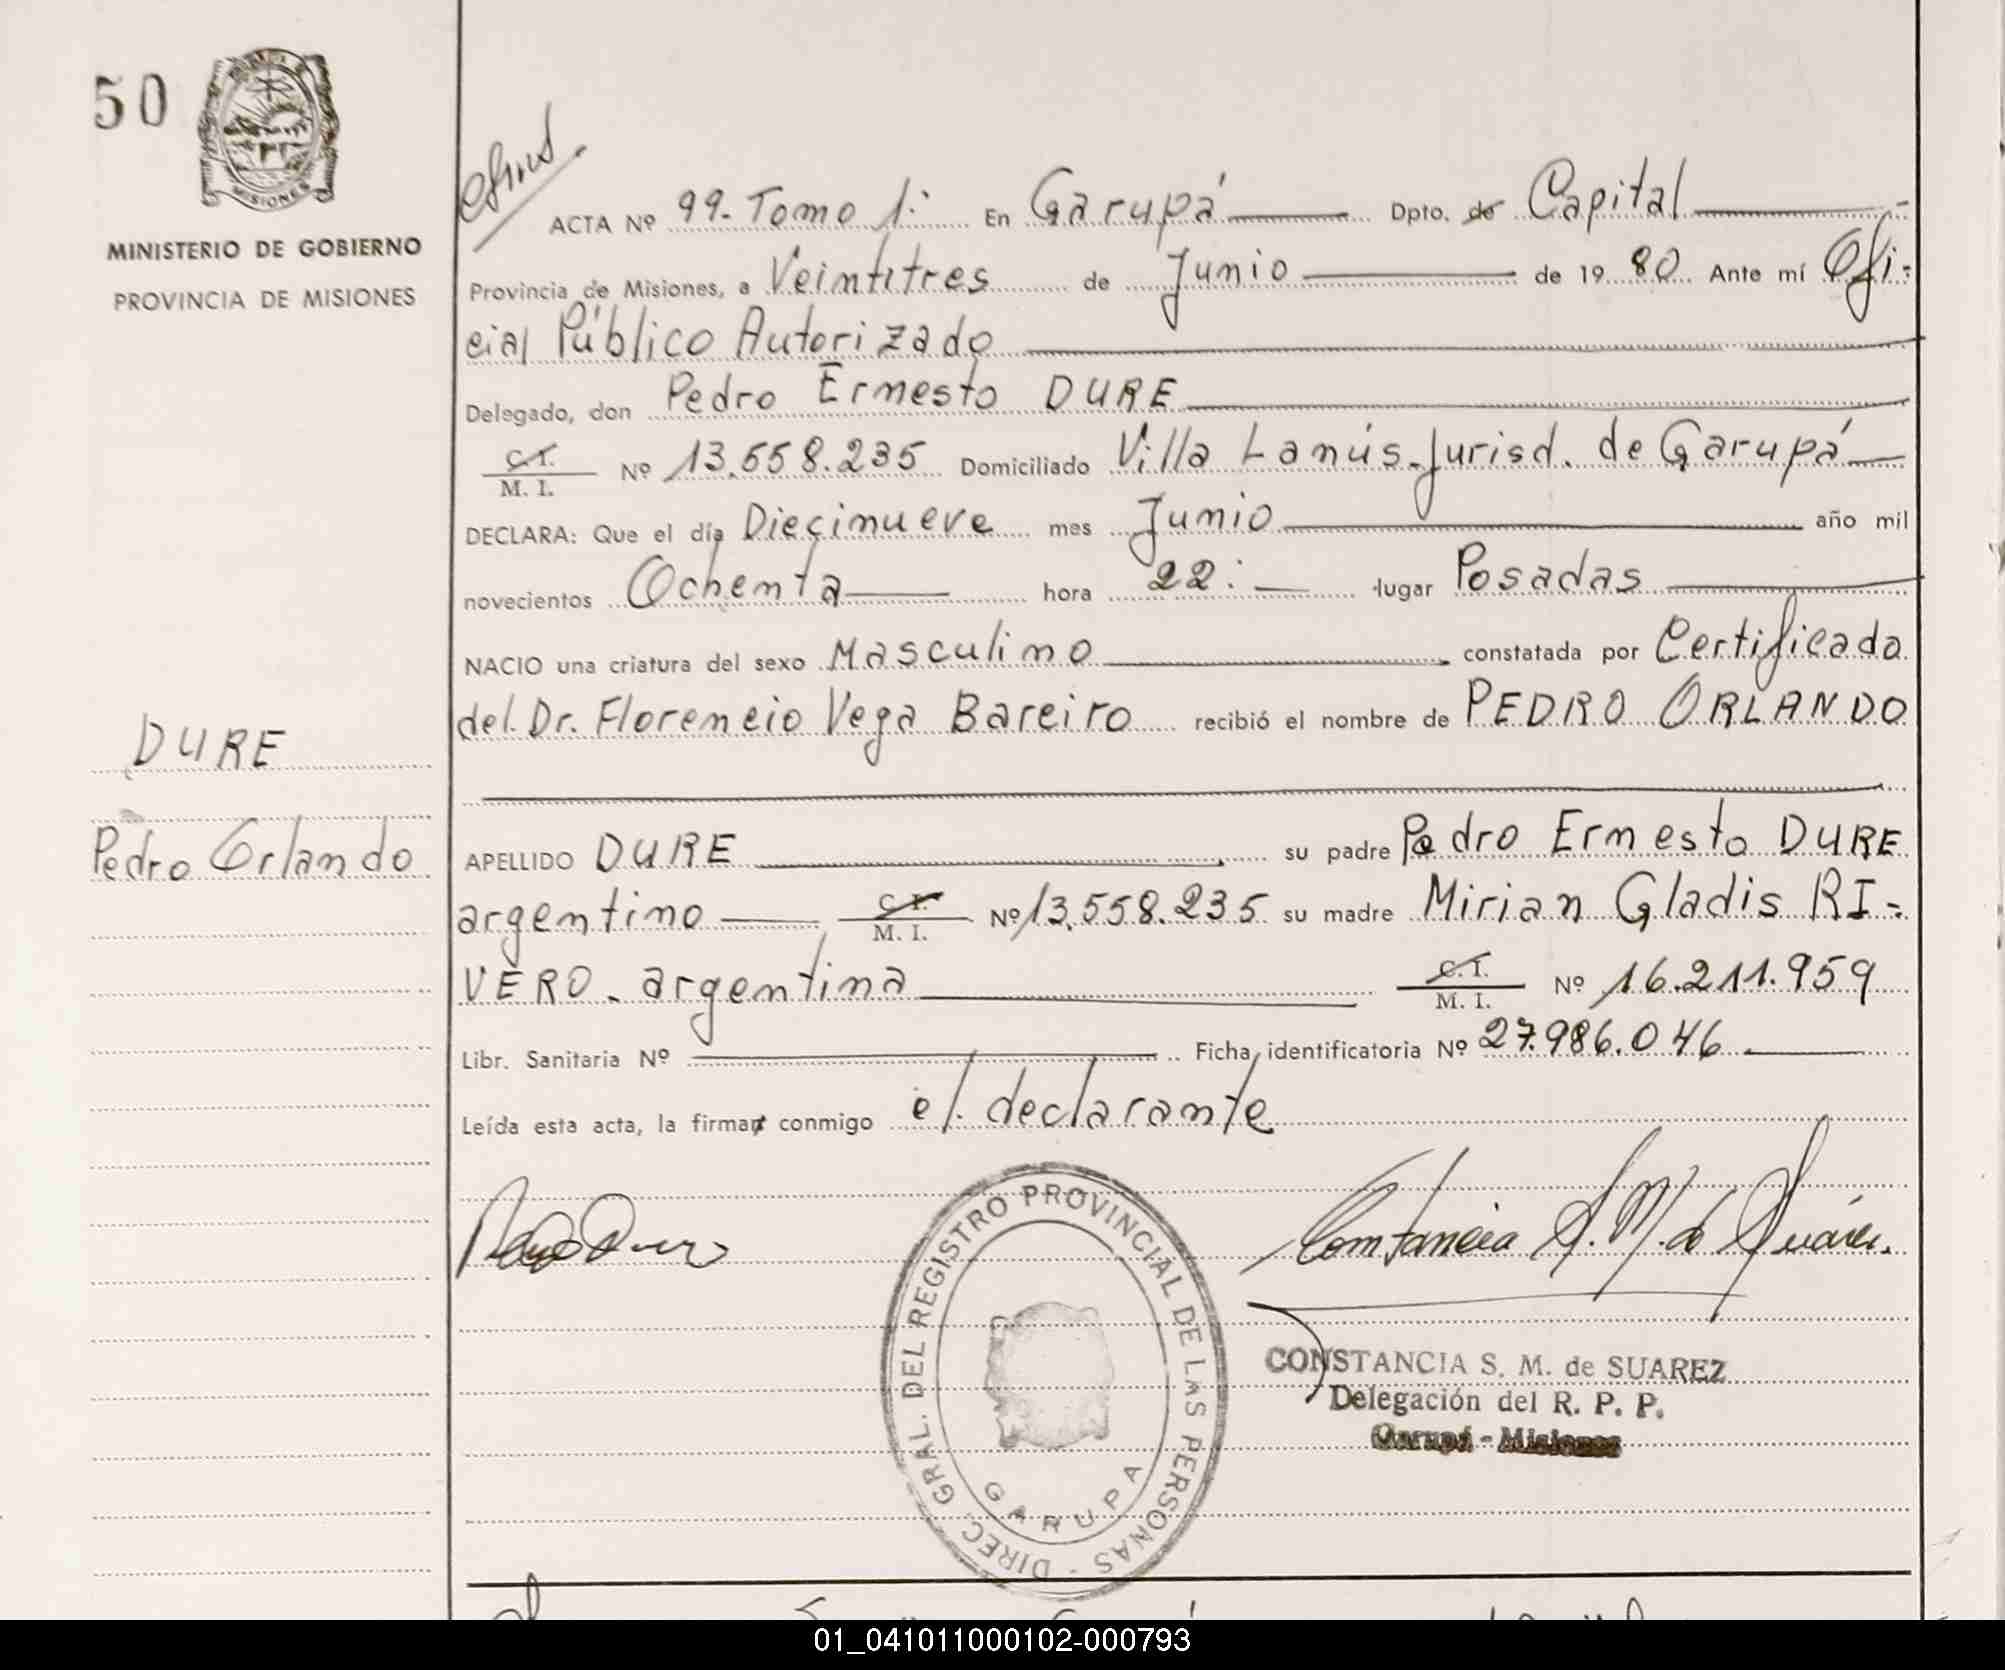 50
MISIONES
MINISTERIO DE GOBIERNO
PROVINCIA DE MISIONES
DURE
Pedro Orlando
ACTA Nº 99. Tomo 1: En Garupá Dpto. de Capital
Provincia de Misiones, a Veintitres de Junio de 1980 Ante mí Ofi-
cial Público Autorizado
Delegado, don Pedro Ernesto DURE
C. I.
M. I. Nº 13.558.235 Domiciliado Villa Lanús-Jurisd. de Garupá
DECLARA: Que el día Diecinueve mes Junio año mil
novecientos Ochenta hora 22: lugar Posadas
NACIO una criatura del sexo Masculino constatada por Certificado
del Dr. Florencio Vega Bareiro recibió el nombre de PEDRO ORLANDO
APELLIDO DURE su padre Pedro Ernesto DURE
argentino C. I. M. I. Nº 13.558.235 su madre Mirian Gladis RI-
VERO - argentina C. I. M. I. Nº 16.211.959
Libr. Sanitaria Nº Ficha identificatoria Nº 27.986.046
Leída esta acta, la firman conmigo el declarante
Constancia S. M. de Suárez
DIREC. GRAL. DEL REGISTRO PROVINCIAL DE LAS PERSONAS -
GARUPA
CONSTANCIA S. M. de SUAREZ
Delegación del R. P. P.
Garupá - Misiones
01_041011000102-000793